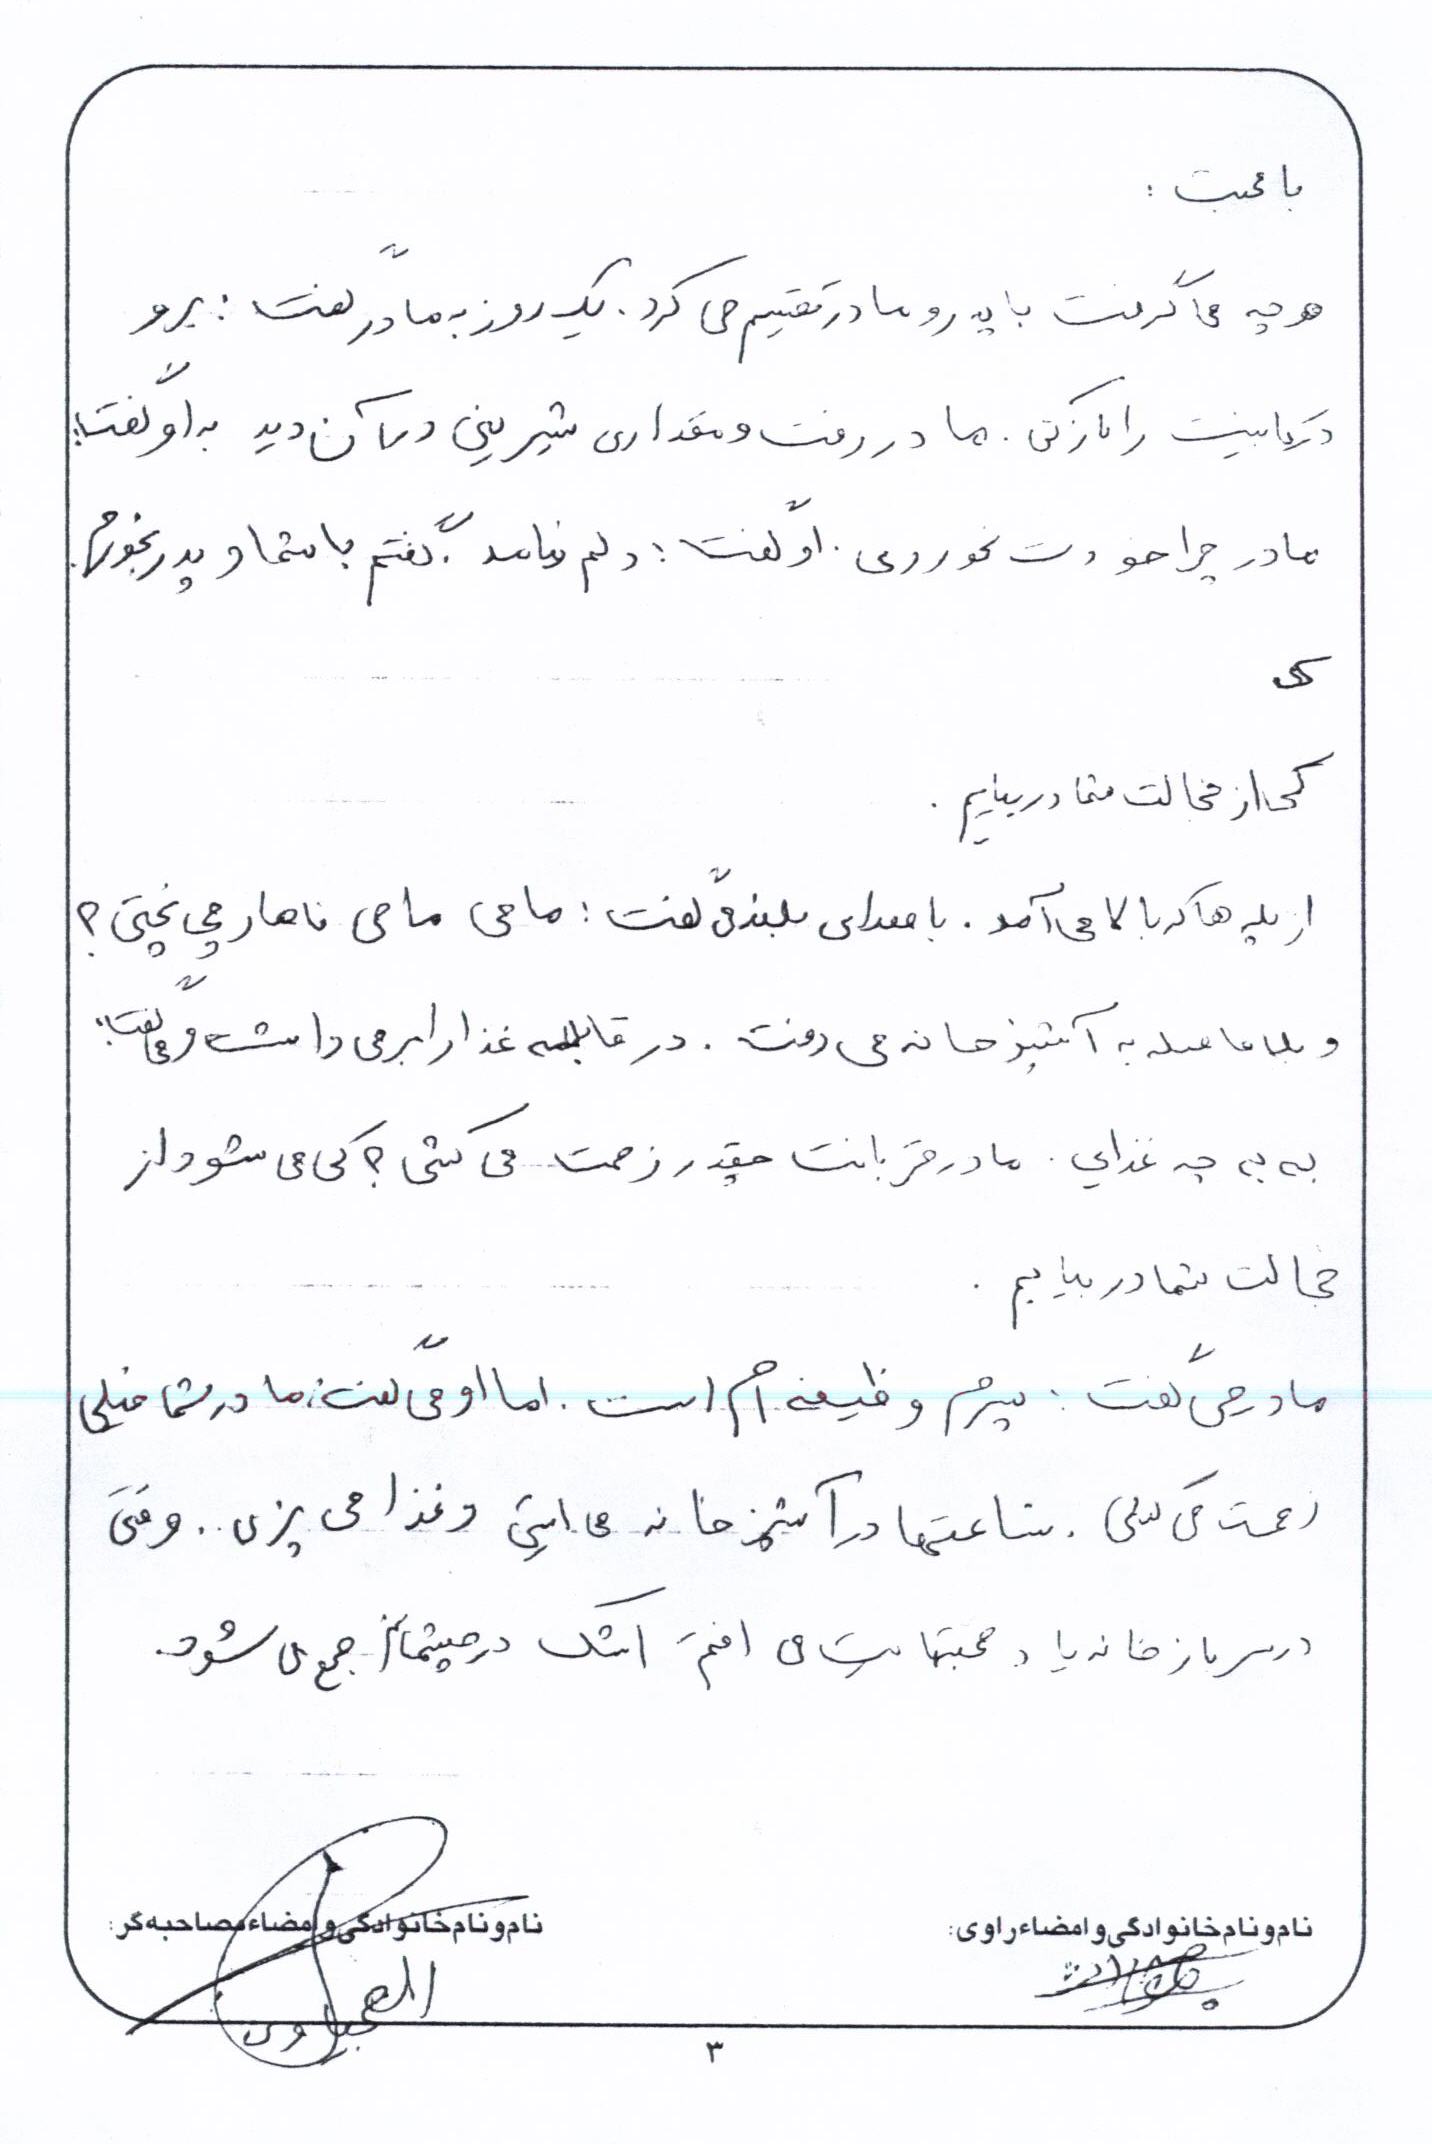 با محبت :
هر چه می گرفت با پدر و مادر تقسیم می کرد . یک روز به مادر گفت : برو
در کابینت را باز کن . مادر رفت و مقداری شیرینی در آن دید به او گفت :
مادر چرا خودت نخوردی . او گفت : دلم نیامد . گفتم با شما و پدر بخورم .
کی
کی از خجالت شما در بیایم .
از پله ها که بالا می آمد . با صدای بلند می گفت : مامی مامی ناهار چی پختی ؟
و بلافاصله به آشپزخانه می رفت . در قابلمه غذا را برمی داشت و می گفت :
به به چه غذایی . مادر قربانت چقدر زحمت می کشی ؟ کی می شود از
خجالت شما در بیایم .
مادر می گفت : پسرم وظیفه ام است . اما او می گفت : مادر شما خیلی
زحمت می کشی . ساعتها در آشپزخانه می ایستی و غذا می پزی . . وقتی
در سربازخانه یاد محبتهایت می افتم اشک در چشمانم جمع می شود .
نام و نام خانوادگی و امضاء راوی :
نام و نام خانوادگی و امضاء مصاحبه گر :
الهه
۳